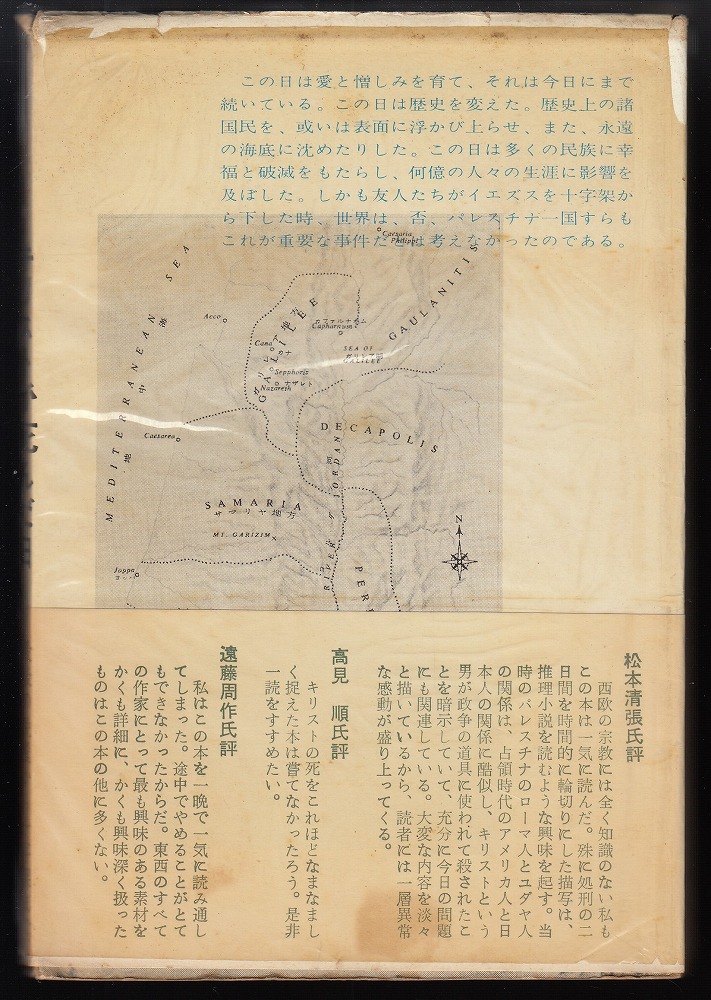 この日は愛と憎しみを育て、それは今日にまで
続いている。この日は歴史を変えた。歴史上の諸
国民を、或いは表面に浮かび上らせ、また、永遠
の海底に沈めたりした。この日は多くの民族に幸
福と破滅をもたらし、何億の人々の生涯に影響を
及ぼした。しかも友人たちがイエズスを十字架か
ら下した時、世界は、否、パレスチナ一国すらも
これが重要な事件だとは考えなかったのである。
Caesaria
Philippi
MEDITERRANEAN SEA
地中海
Acco
GALILEE
ガリラヤ地方
カファルナオム
Capharnaum
GAULANITIS
SEA OF
GALILEE
Cana
カナ
Sepphoris
Nazareth
ナザレト
Caesarea
DECAPOLIS
SAMARIA
サマリヤ地方
MT. GARIZIM
RIVER JORDAN
N
Joppa
PER
松本清張氏評
西欧の宗教には全く知識のない私も
この本は一気に読んだ。殊に処刑の二
日間を時間的に輪切りにした描写は、
推理小説を読むような興味を起す。当
時のパレスチナのローマ人とユダヤ人
の関係は、占領時代のアメリカ人と日
本人の関係に酷似し、キリストという
男が政争の道具に使われて殺されたこ
とを暗示していて、充分に今日の問題
にも関連している。大変な内容を淡々
と描いているから、読者には一層異常
な感動が盛り上ってくる。
高見 順氏評
キリストの死をこれほどなまなまし
く捉えた本は嘗てなかったろう。是非
一読をすすめたい。
遠藤周作氏評
私はこの本を一晩で一気に読み通し
てしまった。途中でやめることがとて
もできなかったからだ。東西のすべて
の作家にとって最も興味のある素材を
かくも詳細に、かくも興味深く扱った
ものはこの本の他に多くない。